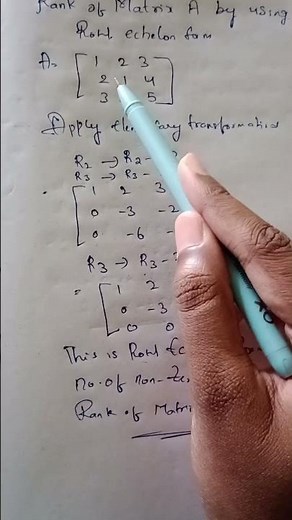 Rank of Matrix A by using
Row echelon form
A = [ 1 2 3
2 1 4
3 5 ]
Apply elementary transformation
R2 → R2 -
R3 → R3 -
[ 1 2 3
0 -3 -2
0 -6 -
R3 → R3 -
= [ 1 2
0 -3
0 0
This is Row
no. of non-
Rank of Matri